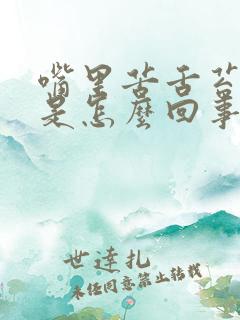 嘴里苦舌苔
是怎麼回事
世達扎
未经同意禁止转载